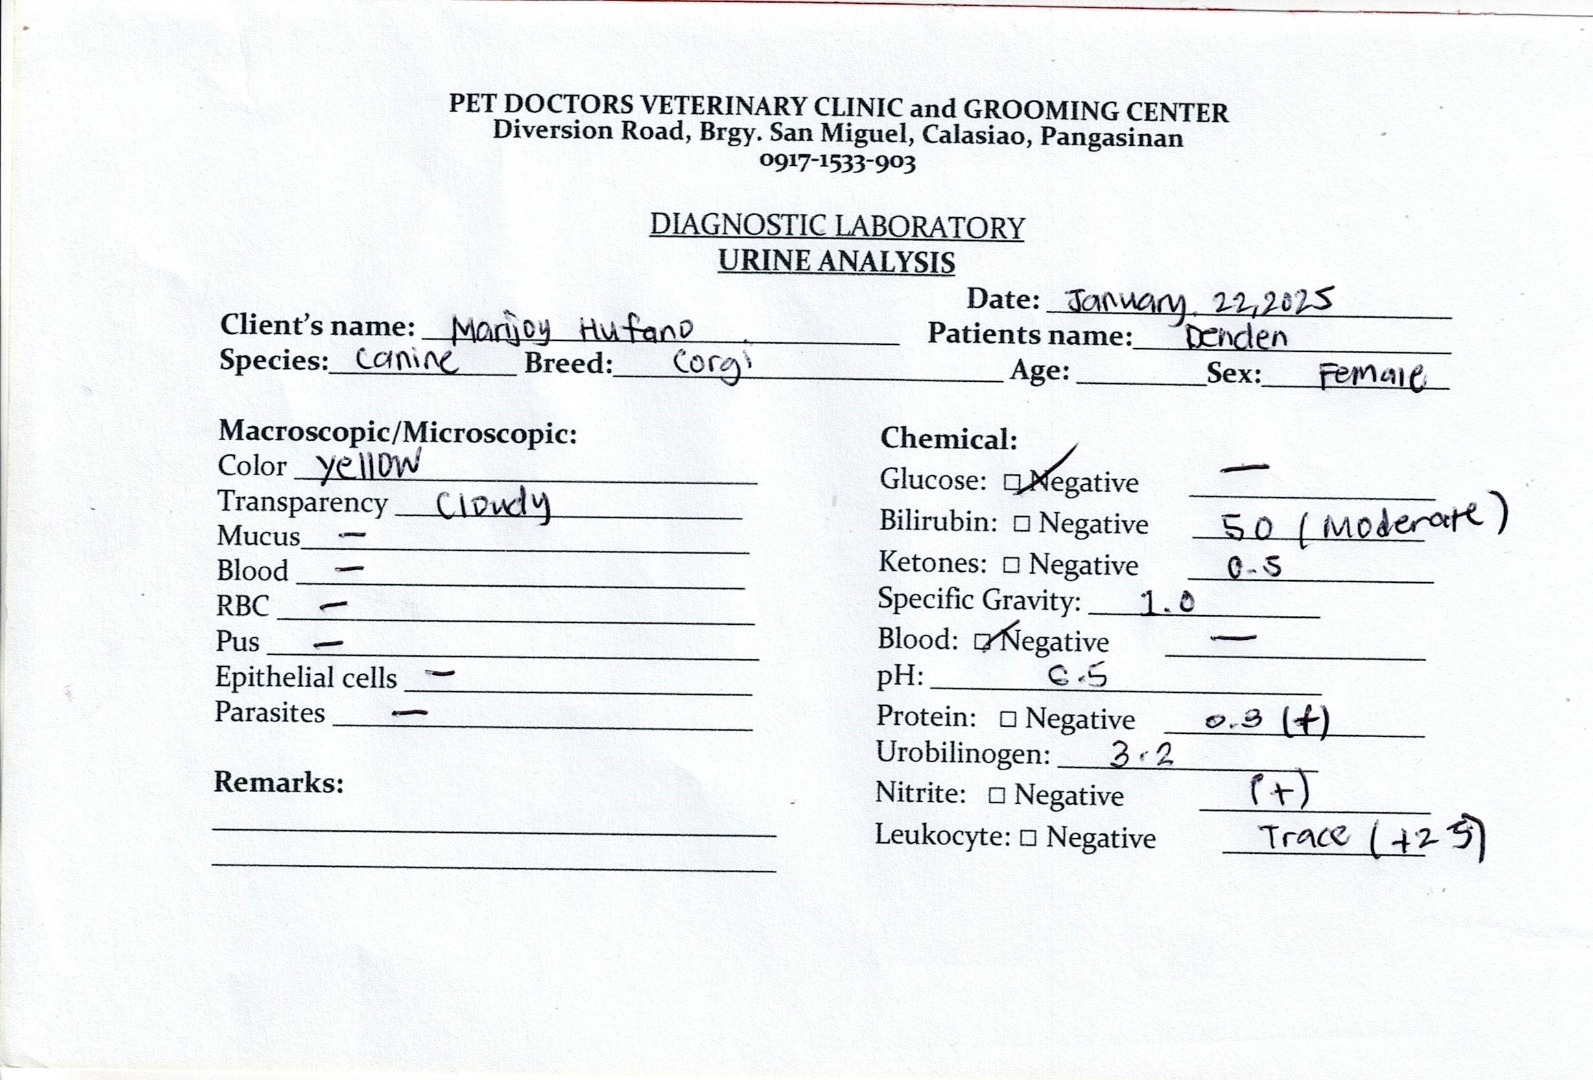 PET DOCTORS VETERINARY CLINIC and GROOMING CENTER
Diversion Road, Brgy. San Miguel, Calasiao, Pangasinan
0917-1533-903
DIAGNOSTIC LABORATORY
URINE ANALYSIS
Date: January 22, 2025
Client's name: Marijoy Hufano Patients name: Denden
Species: Canine Breed: Corgi Age: Sex: Female
Macroscopic/Microscopic:
Color yellow
Transparency Cloudy
Mucus —
Blood —
RBC —
Pus —
Epithelial cells —
Parasites —
Remarks:
Chemical:
Glucose: ☑ Negative —
Bilirubin: ☐ Negative 50 (Moderate)
Ketones: ☐ Negative 0.5
Specific Gravity: 1.0
Blood: ☑ Negative —
pH: 6.5
Protein: ☐ Negative 0.3 (+)
Urobilinogen: 3.2
Nitrite: ☐ Negative (+)
Leukocyte: ☐ Negative Trace (+25)